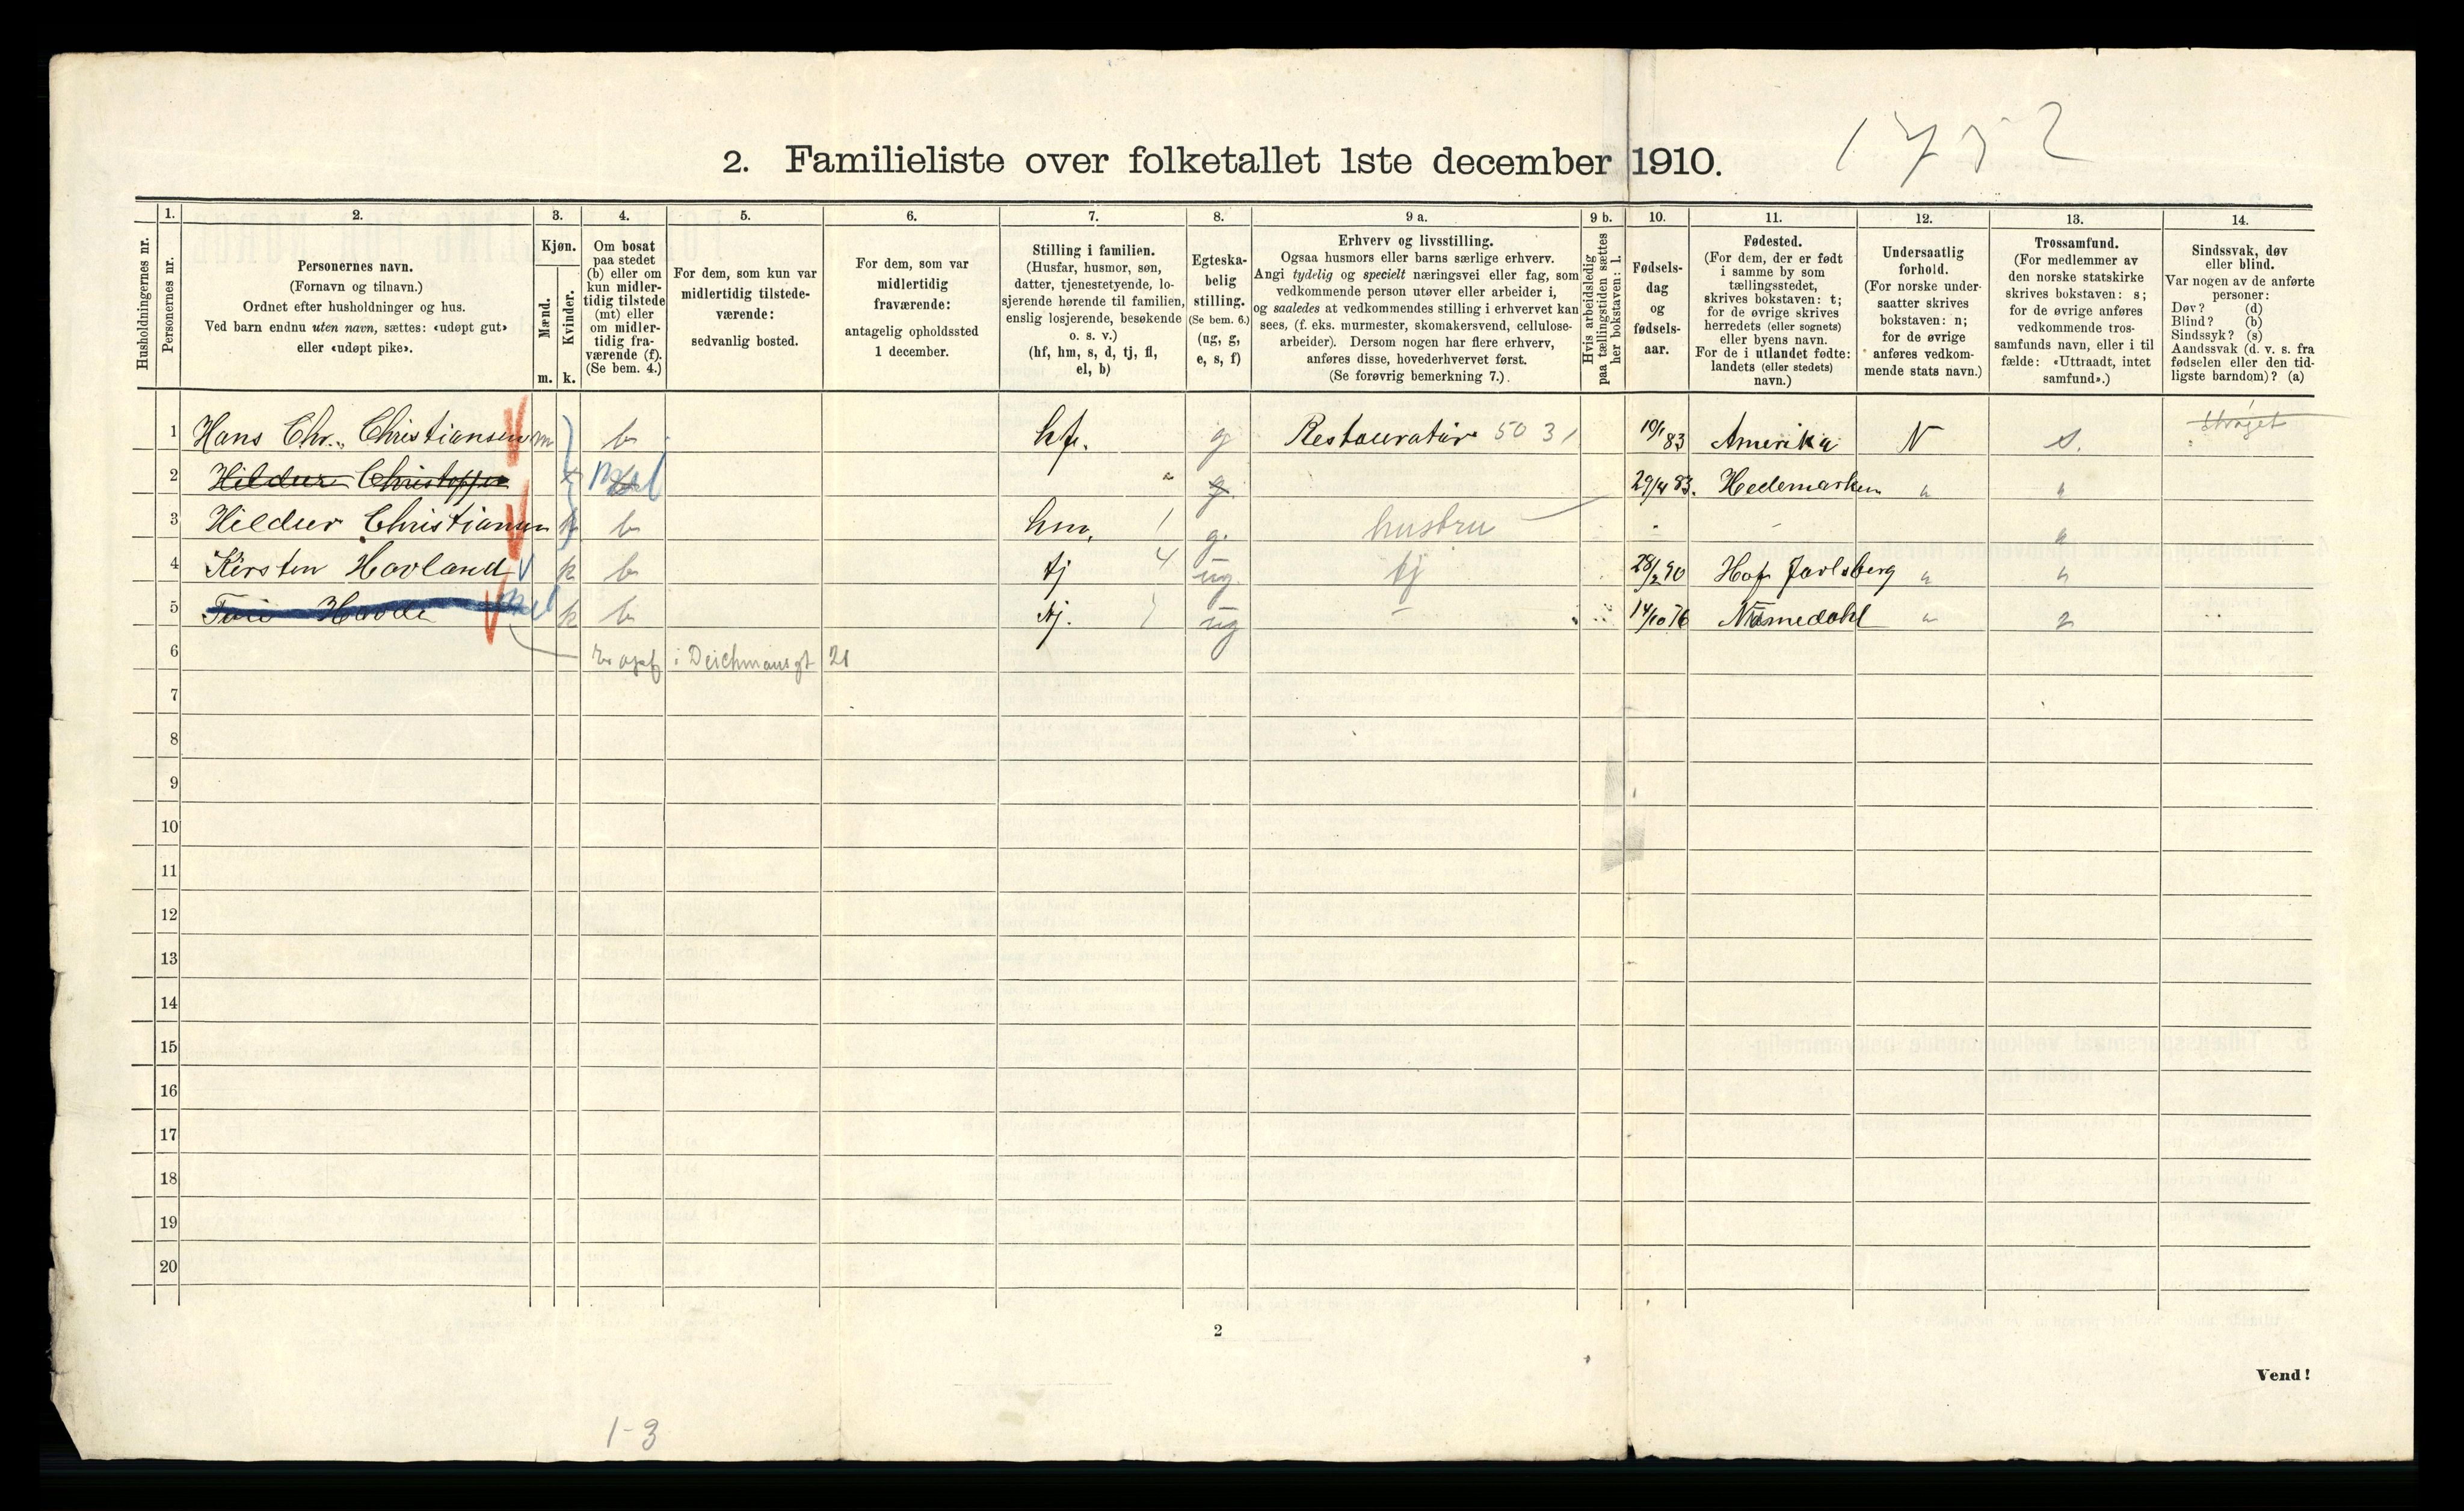 1752
2. Familieliste over folketallet 1ste december 1910.
Husholdningernes nr.
1.
Personernes nr.
2.
Personernes navn.
(Fornavn og tilnavn.)
Ordnet efter husholdninger og hus.
Ved barn endnu uten navn, sættes: «udøpt gut»
eller «udøpt pike».
3.
Kjøn.
Mænd.
Kvinder.
m. k.
4.
Om bosat
paa stedet
(b) eller om
kun midler-
tidig tilstede
(mt) eller
om midler-
tidig fra-
værende (f).
(Se bem. 4.)
5.
For dem, som kun var
midlertidig tilstede-
værende:
sedvanlig bosted.
6.
For dem, som var
midlertidig
fraværende:
antagelig opholdssted
1 december.
7.
Stilling i familien.
(Husfar, husmor, søn,
datter, tjenestetyende, lo-
sjerende hørende til familien,
enslig losjerende, besøkende
o. s. v.)
(hf, hm, s, d, tj, fl,
el, b)
8.
Egteska-
belig
stilling.
(Se bem. 6.)
(ug, g,
e, s, f)
9 a.
Erhverv og livsstilling.
Ogsaa husmors eller barns særlige erhverv.
Angi tydelig og specielt næringsvei eller fag, som
vedkommende person utøver eller arbeider i,
og saaledes at vedkommendes stilling i erhvervet kan
sees, (f. eks. murmester, skomakersvend, cellulose-
arbeider). Dersom nogen har flere erhverv,
anføres disse, hovederhvervet først.
(Se forøvrig bemerkning 7.)
9 b.
Hvis arbeidsledig
paa tællingstiden sættes
her bokstaven: l.
10.
Fødsels-
dag
og
fødsels-
aar.
11.
Fødested.
(For dem, der er født
i samme by som
tællingsstedet,
skrives bokstaven: t;
for de øvrige skrives
herredets (eller sognets)
eller byens navn.
For de i utlandet fødte:
landets (eller stedets)
navn.)
12.
Undersaatlig
forhold.
(For norske under-
saatter skrives
bokstaven: n;
for de øvrige
anføres vedkom-
mende stats navn.)
13.
Trossamfund.
(For medlemmer av
den norske statskirke
skrives bokstaven: s;
for de øvrige anføres
vedkommende tros-
samfunds navn, eller i til
fælde: «Uttraadt, intet
samfund».)
14.
Sindssvak, døv
eller blind.
Var nogen av de anførte
personer:
Døv? (d)
Blind? (b)
Sindssyk? (s)
Aandssvak (d. v. s. fra
fødselen eller den tid-
ligste barndom)? (a)
1 Hans Chr. Christiansen m b hf. g Restauratør 50 31 10/1 83 Amerika N s.
2 Hildur Christoffer g. 29/4 83. Hedemarken " "
3 Hildur Christiansen k b hm. 1 g. hustru "
4 Kirsten Havland k b tj 4 ug. tj 28/2 90 Hof Jarlsberg " "
5 k b tj. ug 14/10 76 Numedahl " "
6 i Deichmansgt 21
7
8
9
10
11
12
13
14
15
16
17
18
19
20
2
Vend!
1-3